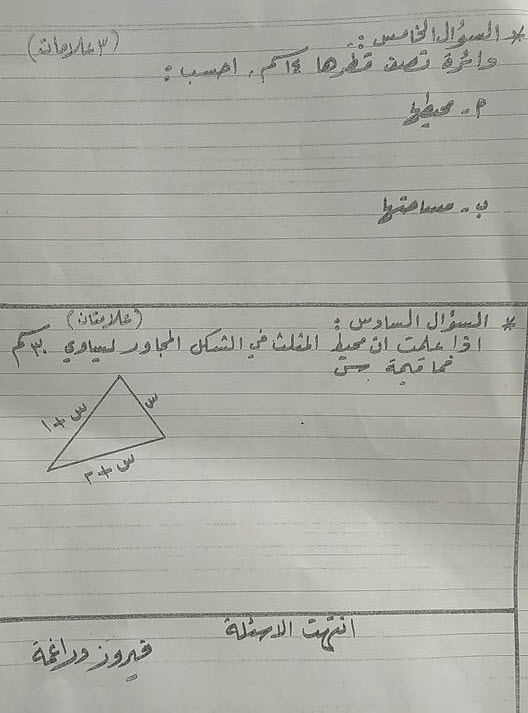 * السؤال الخامس : (٣ علامات)
دائرة نصف قطرها ١٤ كم ، احسب :
م - محيطها
ب - مساحتها
* السؤال السادس : (علامتان)
اذا علمت ان محيط المثلث في الشكل المجاور يساوي ٣٠ كم
فما قيمة س
س + ١
س
س + ٢
انتهت الاسئلة
فيروز دراغمة